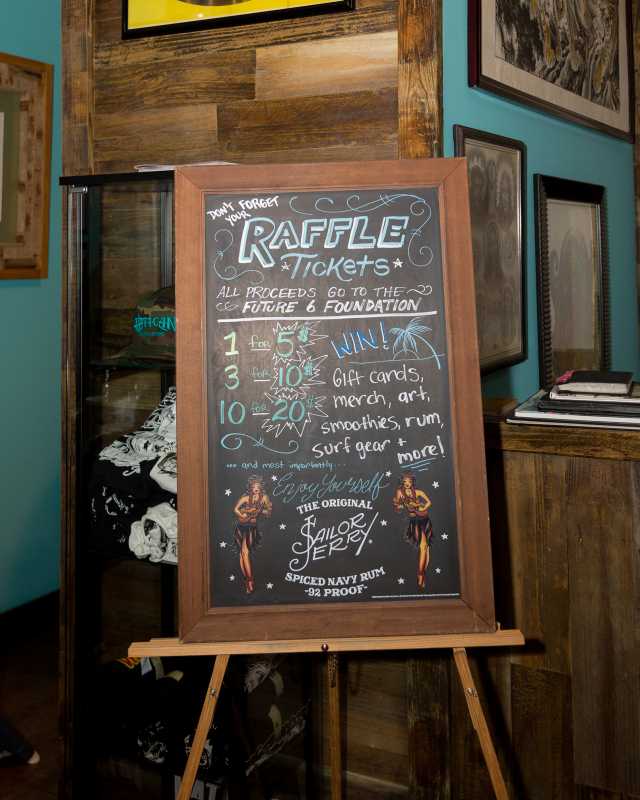 DON'T FORGET
YOUR
RAFFLE
TICKETS
ALL PROCEEDS GO TO THE
FUTURE 6 FOUNDATION
1 FOR 5$
3 FOR 10$
10 FOR 20$
WIN!
Gift cards,
merch, art,
smoothies, rum,
surf gear +
more!
... and most importantly...
Enjoy Yourself
THE ORIGINAL
SAILOR
JERRY
SPICED NAVY RUM
-92 PROOF-